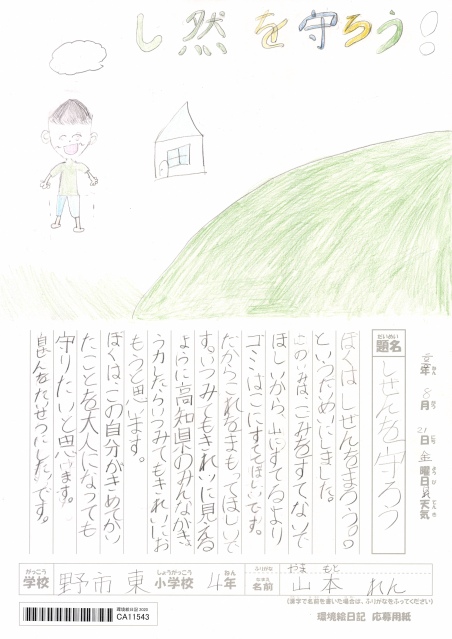 し然を守ろう!
年 8月 21日 金曜日 天気
題名 しぜんを守ろう
ぼくはしぜんをまろう。
といつだいめいにしました。
このいみは、ごみをすてないで
ほしいから、山にすてるより
ゴミばこにすててほしいです。
だからこれをまもってほしいで
す。いつみてもきれいに見える
ように高知県のみんながき
もうと思います。
ぼくは、この自分がきめてかい
たことを大人になっても
守りたいと思います。
自ぜんをたいせつにしたいです。
がっこう
学校 野市東
しょうがっこう
小学校 4年
ふりがな やま もと
名前 山本 れん
(漢字で名前を書いた場合は、ふりがなをふってください)
環境絵日記 2020
CA11543
環境絵日記 応募用紙